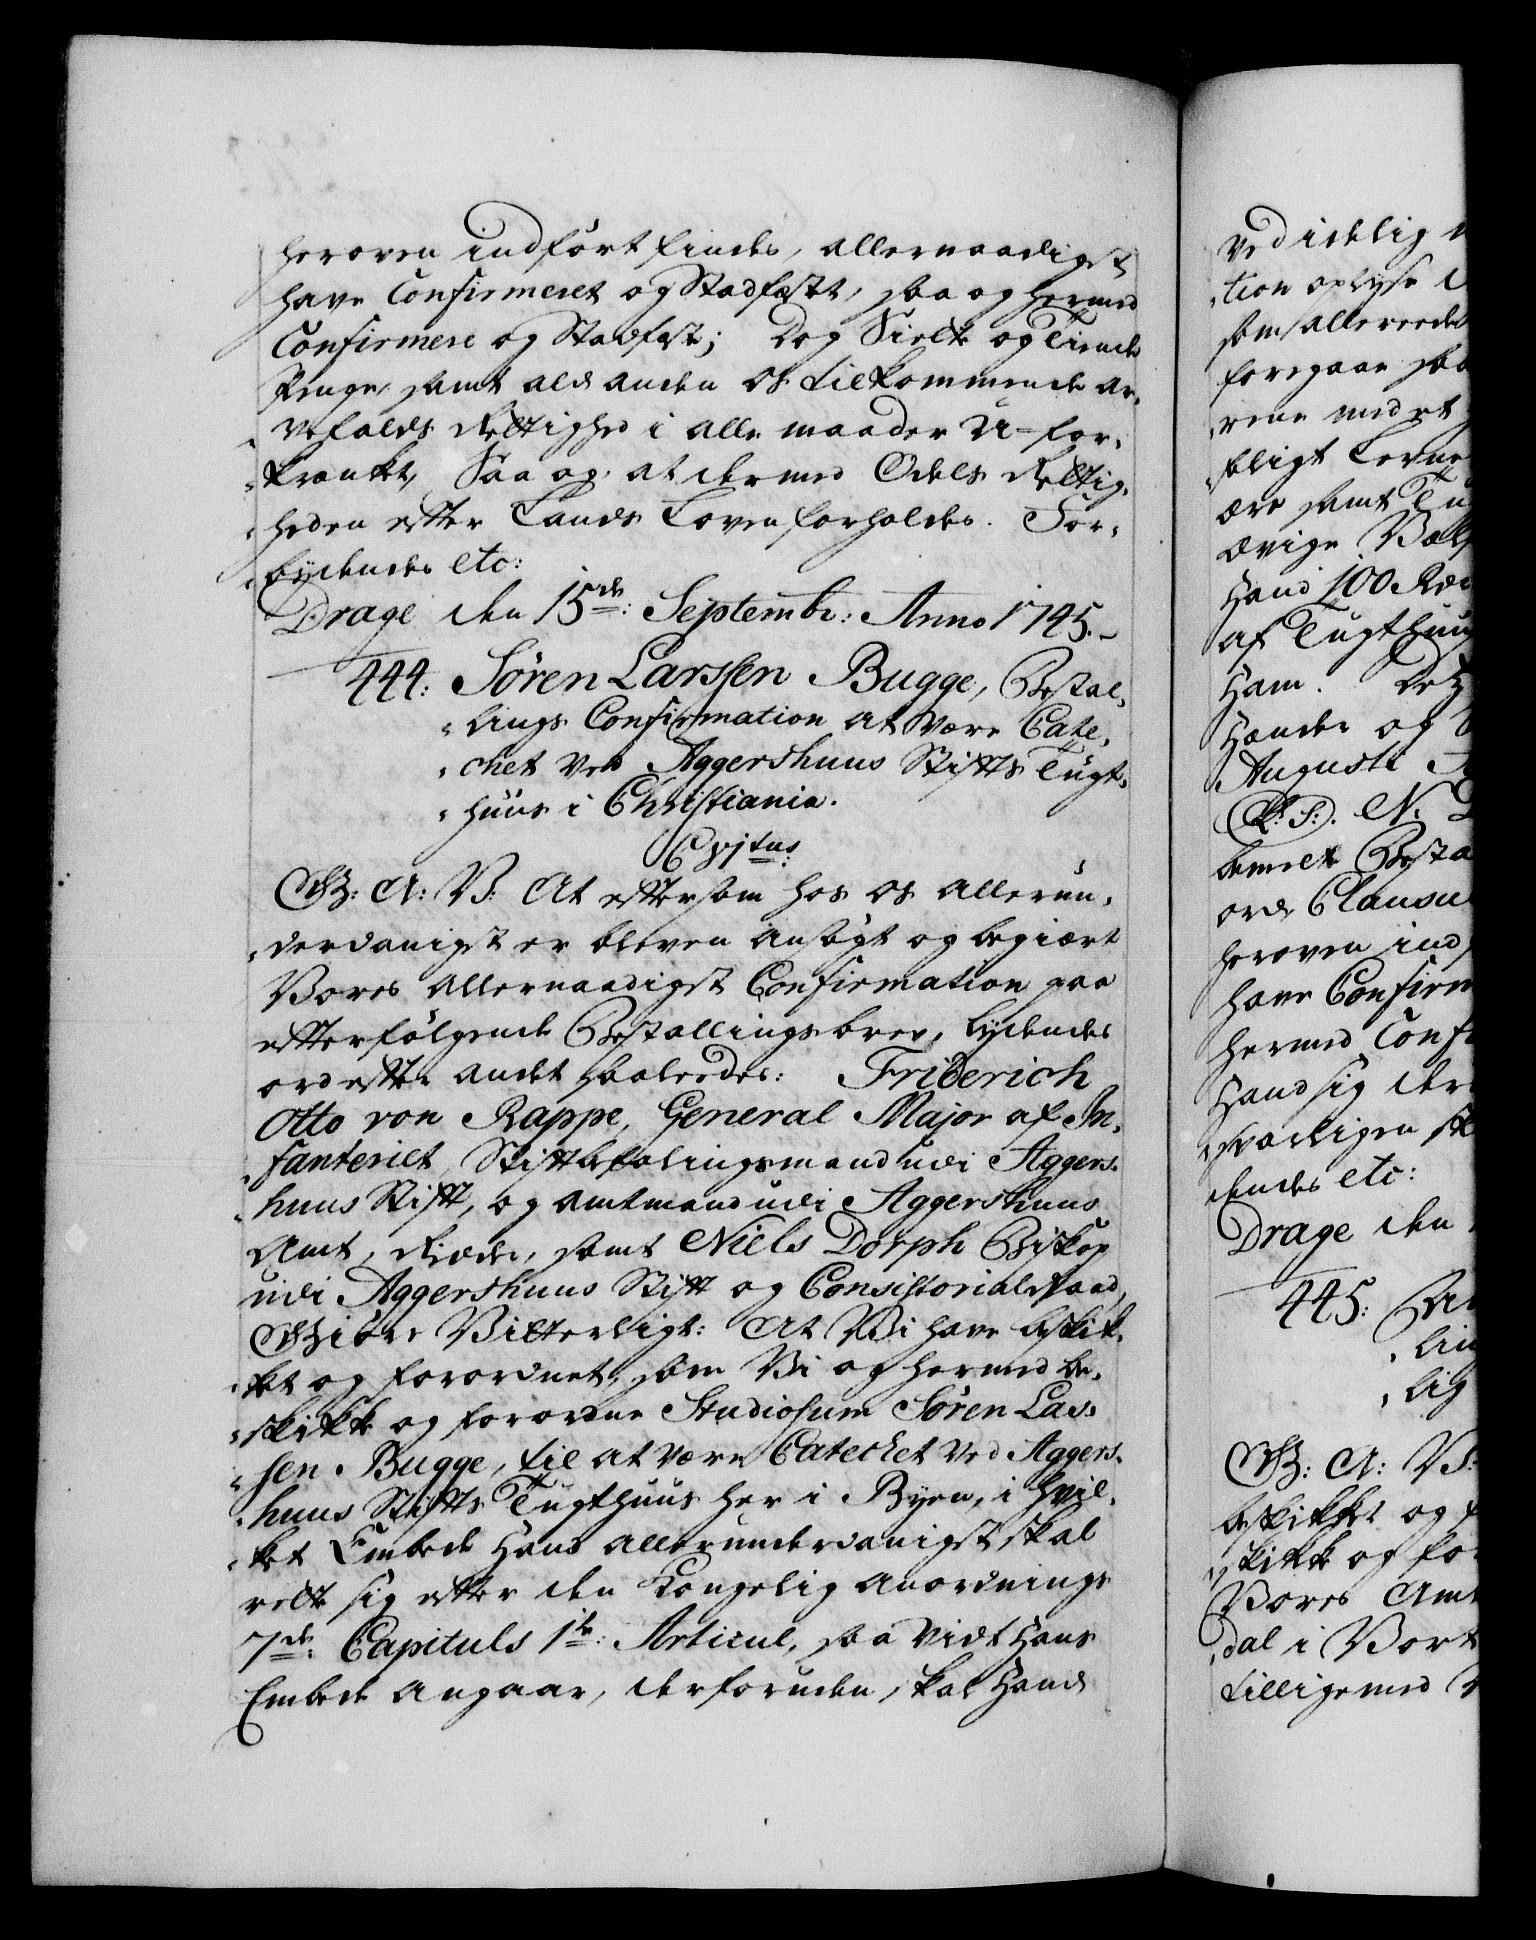 heroven indført findes, allernaadigst
have Confirmeret og Stadfæstt, saa og hermed
Confirmere og Stadfæste; Dog Siette og Tiende
Penge, samt ald anden os tilkommende ar-
vefalds Rettighed i alle maader U-for-
krænket, Saa og at dermed Odels Rettig-
heden efter Lands Loven forholdes. For-
bydendes etc:
Drage den 15de: Septembr: Anno 1745.
444: Søren Larssen Bugge, Bestal-
lings Confirmation at være Cate-
chet ved Aggershuus Stiffts Tugt-
huus i Christiania.
C VI tus:
G: A: V: At eftersom hos os allerun-
derdanigst er bleven ansøgt og begiært
Vores allernaadigst Confirmation paa
efterfølgende Bestallingsbrev, lydendes
ord efter andet saaledes: Friderich
Otto von Rappe, General Major af In-
fanteriet, Stiftbefalingsmand udi Aggers-
huus Stifft, og Amtmand udi Aggershuus
Amt, Ridder, samt Niels Dorph Biskop
udi Aggershuus Stift og Consistorialraad,
Giøre Vitterligt: At Vi have beskik-
ket og forordnet, som Vi og hermed be-
skikke og forordne Studiosum Søren Las-
sen Bugge, til at være Catechet ved Aggers-
huus Stiffts Tugthuus her i Byen, i hvil-
ket Embede Hand allerunderdanigst skal
rette sig efter den Kongelig Anordnings
7de: Capituls 1te: Articul, saa vidt Hans
Embede angaar, desforuden skal Hand
Ved idelig
tion oplyse
som allereede
foregaar saa
rene med et
seligt Levne
ære samt Tu
ævige Vel
Hand 100 R
af Tugthuus
Ham. De
Hænder og
Augusti
(L: S:). N.
bemelte Besta
ord Clausu
heroven ind
have Confirm
hermed Conf
Hand sig der
svarligen sk
dendes etc:
Drage den
445:
lin
lig
G: A: V:
beskikket og f
skikke og for
Vores Amt
dal i Vort
tilligemed